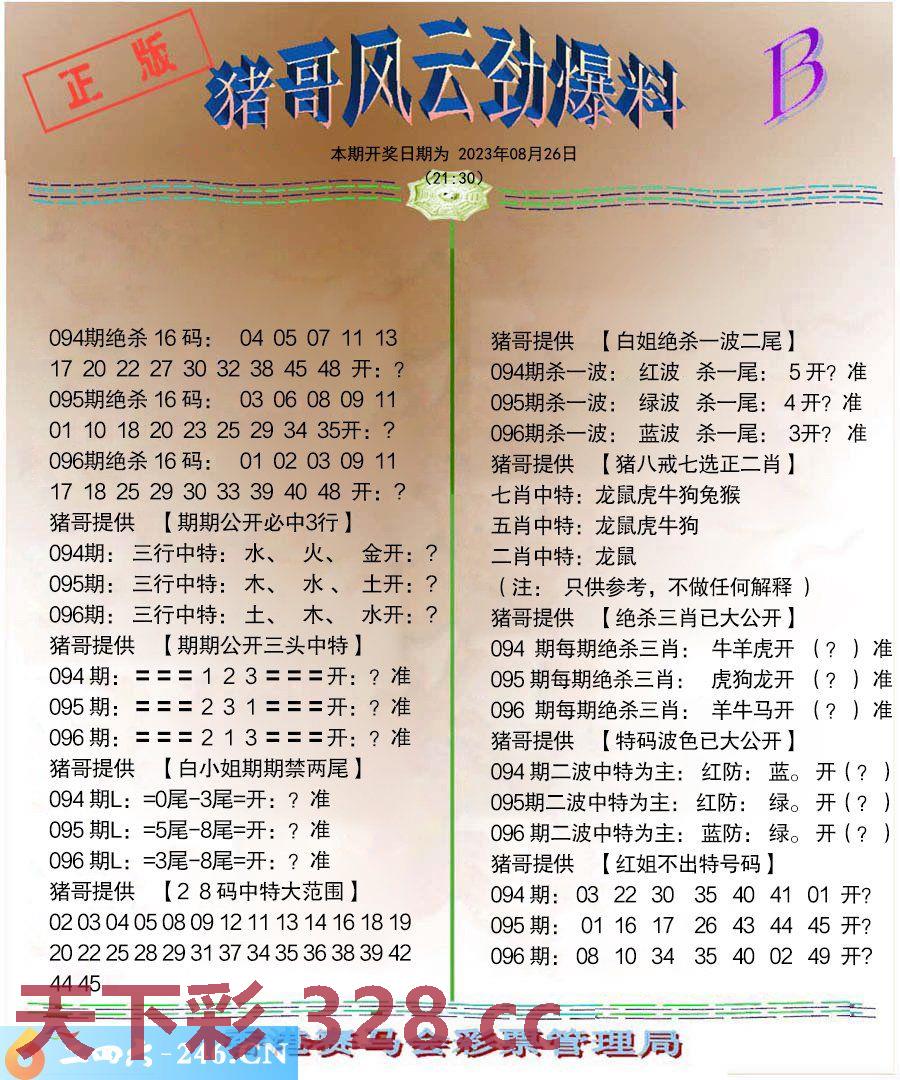 正版
猪哥风云劲爆料
B
本期开奖日期为 2023年08月26日
(21:30)
094期绝杀16码： 04 05 07 11 13
17 20 22 27 30 32 38 45 48 开：?
095期绝杀16码： 03 06 08 09 11
01 10 18 20 23 25 29 34 35开：?
096期绝杀16码： 01 02 03 09 11
17 18 25 29 30 33 39 40 48 开：?
猪哥提供 【期期公开必中3行】
094期： 三行中特：水、 火、 金开：?
095期： 三行中特：木、 水、 土开：?
096期： 三行中特：土、 木、 水开：?
猪哥提供 【期期公开三头中特】
094期：===123===开：? 准
095期：===231===开：? 准
096期：===213===开：? 准
猪哥提供 【白小姐期期禁两尾】
094期L：=0尾-3尾=开：? 准
095期L：=5尾-8尾=开：? 准
096期L：=3尾-8尾=开：? 准
猪哥提供 【28码中特大范围】
02 03 04 05 08 09 12 11 13 14 16 18 19
20 22 25 28 29 31 37 34 35 36 38 39 42
44 45
猪哥提供 【白姐绝杀一波二尾】
094期杀一波： 红波 杀一尾： 5开? 准
095期杀一波： 绿波 杀一尾： 4开? 准
096期杀一波： 蓝波 杀一尾： 3开? 准
猪哥提供 【猪八戒七选正二肖】
七肖中特：龙鼠虎牛狗兔猴
五肖中特：龙鼠虎牛狗
二肖中特：龙鼠
（注： 只供参考，不做任何解释 ）
猪哥提供 【绝杀三肖已大公开】
094 期每期绝杀三肖： 牛羊虎开 （? ）准
095 期每期绝杀三肖： 虎狗龙开 （? ）准
096 期每期绝杀三肖： 羊牛马开 （? ）准
猪哥提供 【特码波色已大公开】
094期二波中特为主：红防：蓝。开(? )
095期二波中特为主：红防： 绿。开(? )
096期二波中特为主：蓝防：绿。开(? )
猪哥提供 【红姐不出特号码】
094期： 03 22 30 35 40 41 01 开?
095期： 01 16 17 26 43 44 45 开?
096期： 08 10 34 35 40 02 49 开?
天下彩 328.cc
香港赛马会彩票管理局
-246.CN